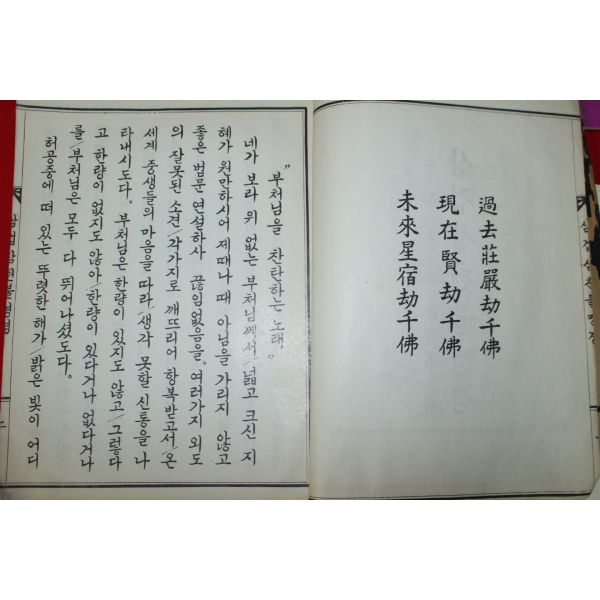 過去莊嚴劫千佛
現在賢劫千佛
未來星宿劫千佛
"부처님을 찬탄하는 노래"
네가 보라 위 없는 부처님께서 넓고 크신 지
혜가 원만하시어 제때나 때 아님을 가리지 않고
좋은 법문 연설하사 끊임없음을. 여러가지 외도
의 잘못된 소견/각가지로 깨뜨리어 항복받고서/온
세계 중생들의 마음을 따라/생각 못할 신통을 나
타내시도다. 부처님은 한량이 있지도 않고/그렇다
고 한량이 없지도 않아/한량이 있다거나 없다거나
를/부처님은 모두 다 뛰어나셨도다.
허공중에 떠 있는 뚜렷한 해가/밝은 빛이 어디